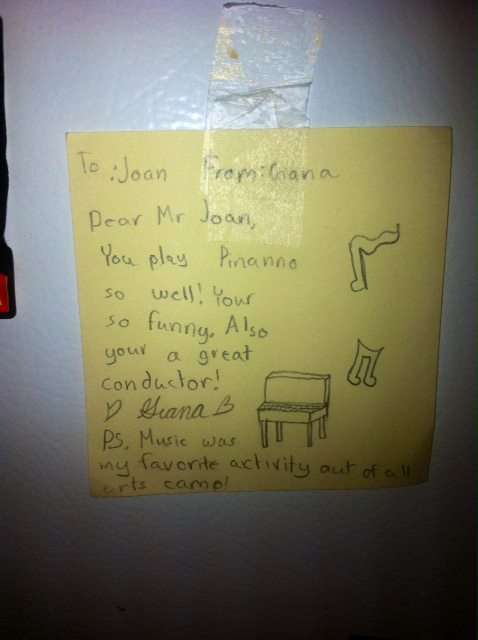 To :Joan From:Giana
Dear Mr Joan,
You play Pinanno
so well! Your
so funny. Also
your a great
conductor!
Giana
PS. Music was
my favorite activity out of all
arts camp!